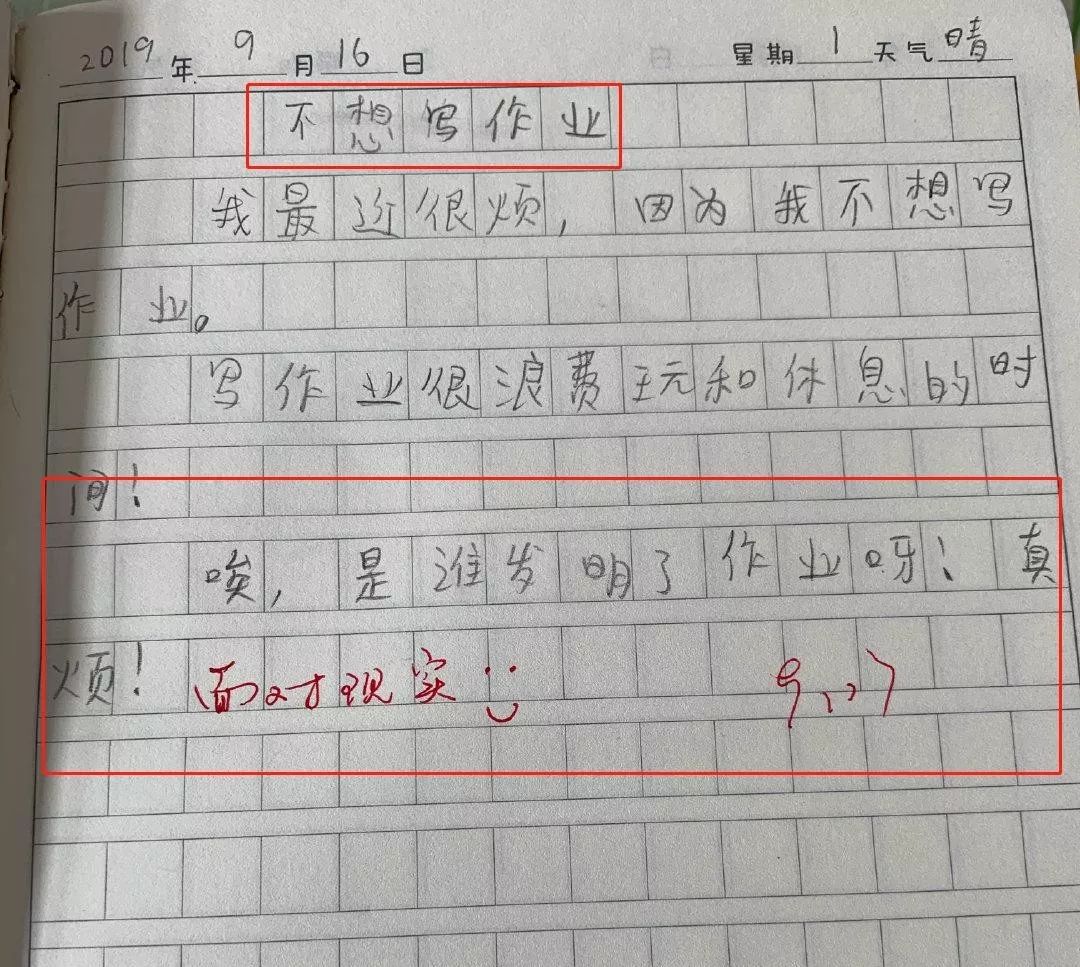 2019年9月16日 星期1天气晴
不想写作业
我最近很烦,因为我不想写
作业。
写作业很浪费玩和休息的时
间!
唉,是谁发明了作业呀!真
烦!面对现实 9.17